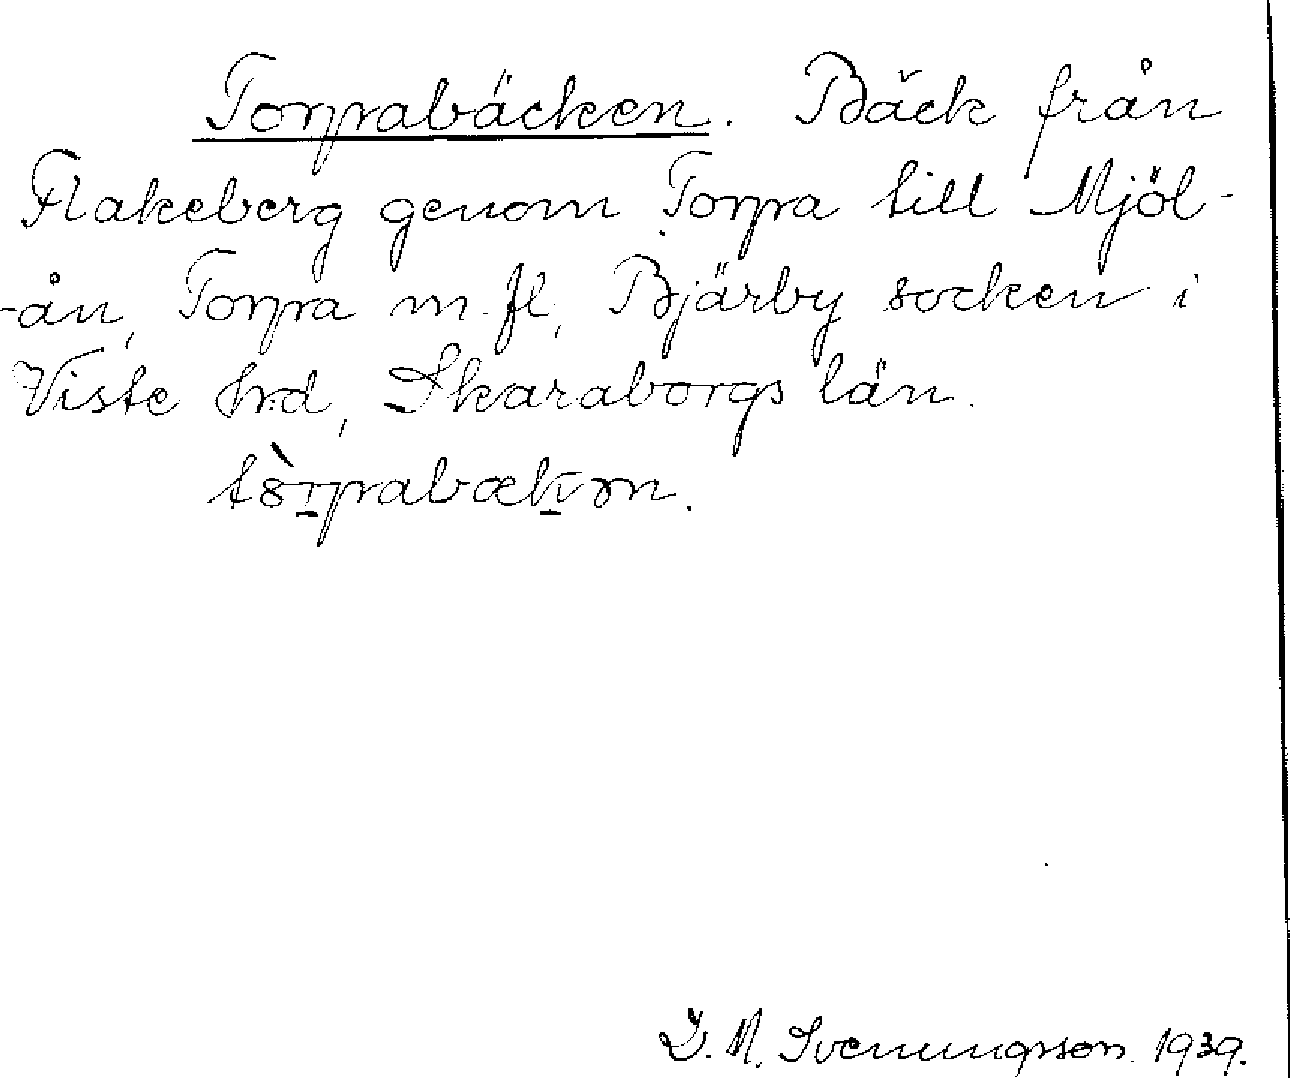 Torpabäcken. Bäck från
Flakeberg genom Torpa till Mjöl-
-ån, Torpa m. fl, Bjärby socken i
Viste hrd, Skaraborgs län.
J. M. Svenungsson 1939.